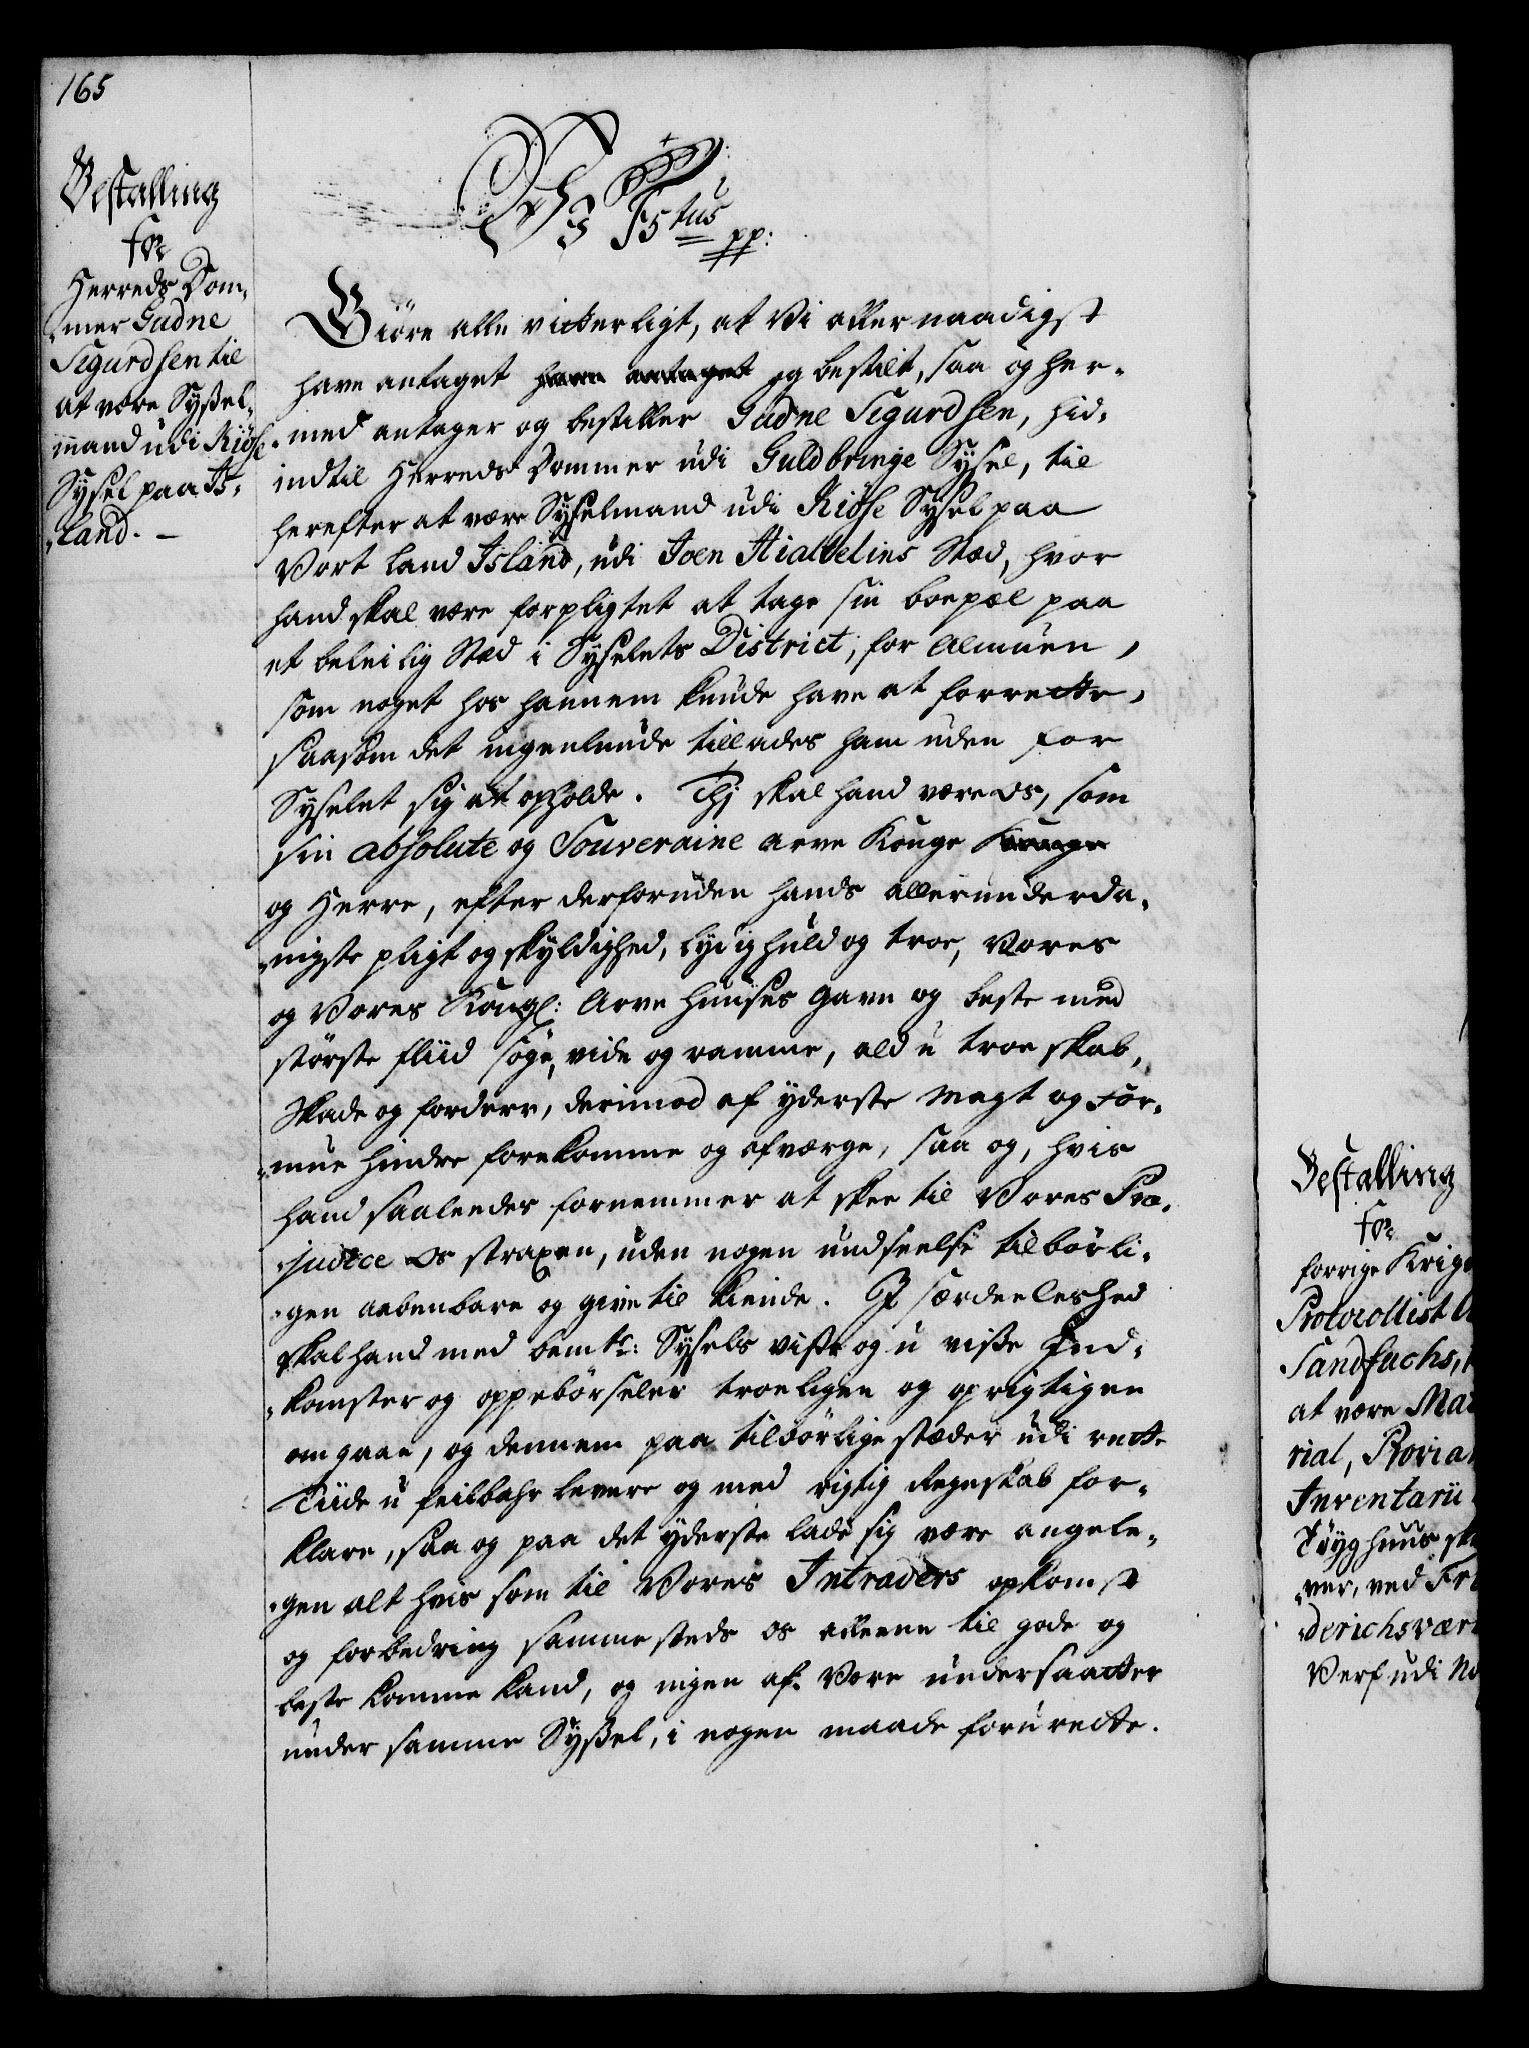 165
Bestalling
for
Herreds Dom-
-mer Gudne
Sigurdsen til
at være Syßel-
mand udi Kiöse
Sysel paa Is-
-land. -
Vi F5tus pp:
Giöre alle vitterligt, at Vi allernaadigst
have antaget have antaget og bestilt, saa og her-
-med antager og bestiller Gudne Sigurdsen, hid-
indtil Herreds Dommer udi Guldbringe Sysel, til
herefter at være Syselmand udi Kiöse Sysel paa
Vort Land Island, udi Joen Hialtelins Stæd, hvor
hand skal være forpligtet at tage sin boepæl paa
et beleilig Stæd i Syselets District, for Almuen,
som noget hos hannem kunde have at forrette,
saasom det ingenlunde tillades ham uden for
Syselet sig at opholde. Thj skal hand være Os, som
sin absolute og Souveraine Arve Konge Konge
og Herre, efter derforuden hands allerunderda-
-nigste pligt og skyldighed, lydig huld og troe, Vores
og Vores Kongl: Arve Huuses Gavn og beste med
störste fliid söge, vide og ramme, ald u troe skab,
Skade og forderv, derimod af yderste Magt og For-
-mue hindre forekomme og afværge, saa og, hvis
hand saaledes fornemmer at skee til Vores Præ-
-judice Os straxen, uden nogen undseelse tilbörli-
-gen aabenbare og give til kiende. I særdeeleshed
skal hand med bemte: Sysels viße og u viße Ind-
-komster og oppebörseler troeligen og oprigtigen
omgaae, og dennem paa tilbörlige stæder udi rette
Tiide u feilbahr levere og med rigtig Regnskab for-
klare, saa og paa det yderste lade sig være angele-
-gen alt hvis som til Vores Intraders opkomst
og forbedring sammesteds os alleene til gode og
beste komme kand, og ingen af Vore undersaatter
under samme Syßel, i nogen maade forurette.
Bestalling
for
forrige Krigs
Protocollist
Sandfuchs,
at være Mat
rial, Provian
Inventarii
Töyghuus sk
-ver, ved Fri
-derichsvær
Verf udi No